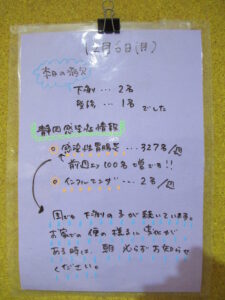 12月6日(月)
本日の病欠
下痢 … 2名
発熱 … 1名
でした
静岡感染症情報
○ 感染性胃腸炎 … 327名/週
前週より100名増です!!
○ インフルエンザ … 2名/週
園でも下痢の子が続いています。
お家での便の様子に変化が
ある時は、朝必らずお知らせ
ください。